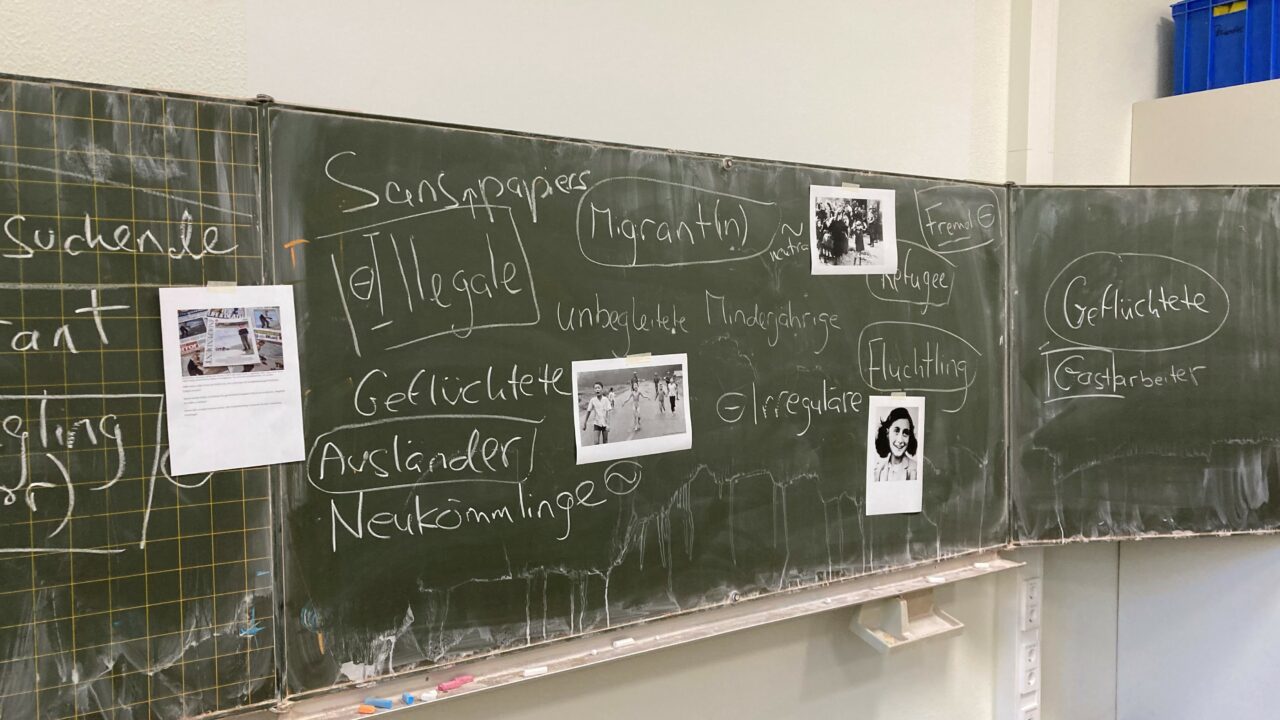 suchende
Sans-papiers
Migrant(in)
~
neutral
Fremd ⊖
⊖ Illegale
Refugee
unbegleitete Minderjährige
Geflüchtete
Flüchtling
⊖ Irreguläre
Ausländer
Neukömmlinge ~
Geflüchtete
Gastarbeiter